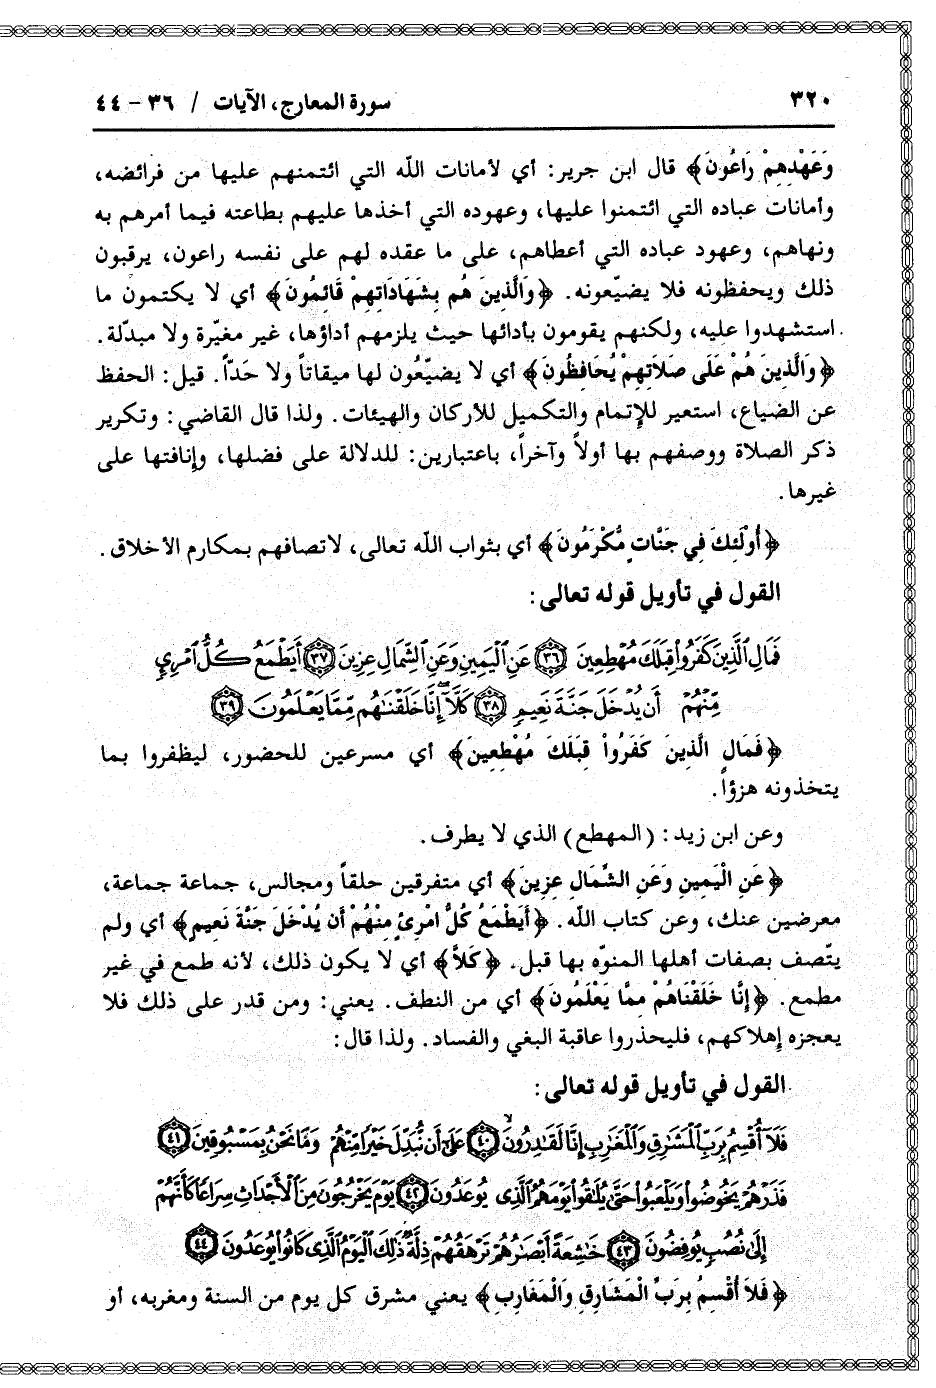 ٣٢٠ سورة المعارج، الآيات / ٣٦ - ٤٤
وَعَهْدِهِمْ رَاعُونَ﴾ قال ابن جرير: أي لأمانات الله التي ائتمنهم عليها من فرائضه،
وأمانات عباده التي ائتمنوا عليها، وعهوده التي أخذها عليهم بطاعته فيما أمرهم به
ونهاهم، وعهود عباده التي أعطاهم، على ما عقده لهم على نفسه راعون، يرقبون
ذلك ويحفظونه فلا يضيّعونه. ﴿وَالَّذِينَ هُم بِشَهَادَاتِهِمْ قَائِمُونَ﴾ أي لا يكتمون ما
استشهدوا عليه، ولكنهم يقومون بأدائها حيث يلزمهم أداؤها، غير مغيّرة ولا مبدّلة.
﴿وَالَّذِينَ هُمْ عَلَى صَلَاتِهِمْ يُحَافِظُونَ﴾ أي لا يضيّعُون لها ميقاتاً ولا حَدّاً. قيل: الحفظ
عن الضياع، استعير للإتمام والتكميل للأركان والهيئات. ولذا قال القاضي: وتكرير
ذكر الصلاة ووصفهم بها أولاً وآخراً، باعتبارين: للدلالة على فضلها، وإنافتها على
غيرها.
﴿أُولَئِكَ فِي جَنَّاتٍ مُّكْرَمُونَ﴾ أي بثواب الله تعالى، لاتصافهم بمكارم الأخلاق.
القول في تأويل قوله تعالى:
فَمَالِ ٱلَّذِينَ كَفَرُوا۟ قِبَلَكَ مُهْطِعِينَ ٣٦ عَنِ ٱلْيَمِينِ وَعَنِ ٱلشِّمَالِ عِزِينَ ٣٧ أَيَطْمَعُ كُلُّ ٱمْرِئٍ
مِّنْهُمْ أَن يُدْخَلَ جَنَّةَ نَعِيمٍ ٣٨ كَلَّآ إِنَّا خَلَقْنَٰهُم مِّمَّا يَعْلَمُونَ ٣٩
﴿فَمَالِ الَّذِينَ كَفَرُواْ قِبَلَكَ مُهْطِعِينَ﴾ أي مسرعين للحضور، ليظفروا بما
يتخذونه هزؤاً.
وعن ابن زيد: (المهطع) الذي لا يطرف.
﴿عَنِ الْيَمِينِ وَعَنِ الشِّمَالِ عِزِينَ﴾ أي متفرقين حلقاً ومجالس، جماعة جماعة،
معرضين عنك، وعن كتاب الله. ﴿أَيَطْمَعُ كُلُّ امْرِئٍ مِنْهُمْ أَن يُدْخَلَ جَنَّةَ نَعِيمٍ﴾ أي ولم
يتّصف بصفات أهلها المنوّه بها قبل. ﴿كَلاَّ﴾ أي لا يكون ذلك، لأنه طمع في غير
مطمع. ﴿إِنَّا خَلَقْنَاهُمْ مِمَّا يَعْلَمُونَ﴾ أي من النطف. يعني: ومن قدر على ذلك فلا
يعجزه إهلاكهم، فليحذروا عاقبة البغي والفساد. ولذا قال:
القول في تأويل قوله تعالى:
فَلَآ أُقْسِمُ بِرَبِّ ٱلْمَشَٰرِقِ وَٱلْمَغَٰرِبِ إِنَّا لَقَٰدِرُونَ ٤٠ عَلَىٰٓ أَن نُّبَدِّلَ خَيْرًا مِّنْهُمْ وَمَا نَحْنُ بِمَسْبُوقِينَ ٤١
فَذَرْهُمْ يَخُوضُوا۟ وَيَلْعَبُوا۟ حَتَّىٰ يُلَٰقُوا۟ يَوْمَهُمُ ٱلَّذِى يُوعَدُونَ ٤٢ يَوْمَ يَخْرُجُونَ مِنَ ٱلْأَجْدَاثِ سِرَاعًا كَأَنَّهُمْ
إِلَىٰ نُصُبٍ يُوفِضُونَ ٤٣ خَٰشِعَةً أَبْصَٰرُهُمْ تَرْهَقُهُمْ ذِلَّةٌ ذَٰلِكَ ٱلْيَوْمُ ٱلَّذِى كَانُوا۟ يُوعَدُونَ ٤٤
﴿فَلاَ أُقْسِمُ بِرَبِّ الْمَشَارِقِ وَالْمَغَارِبِ﴾ يعني مشرق كل يوم من السنة ومغربه، أو